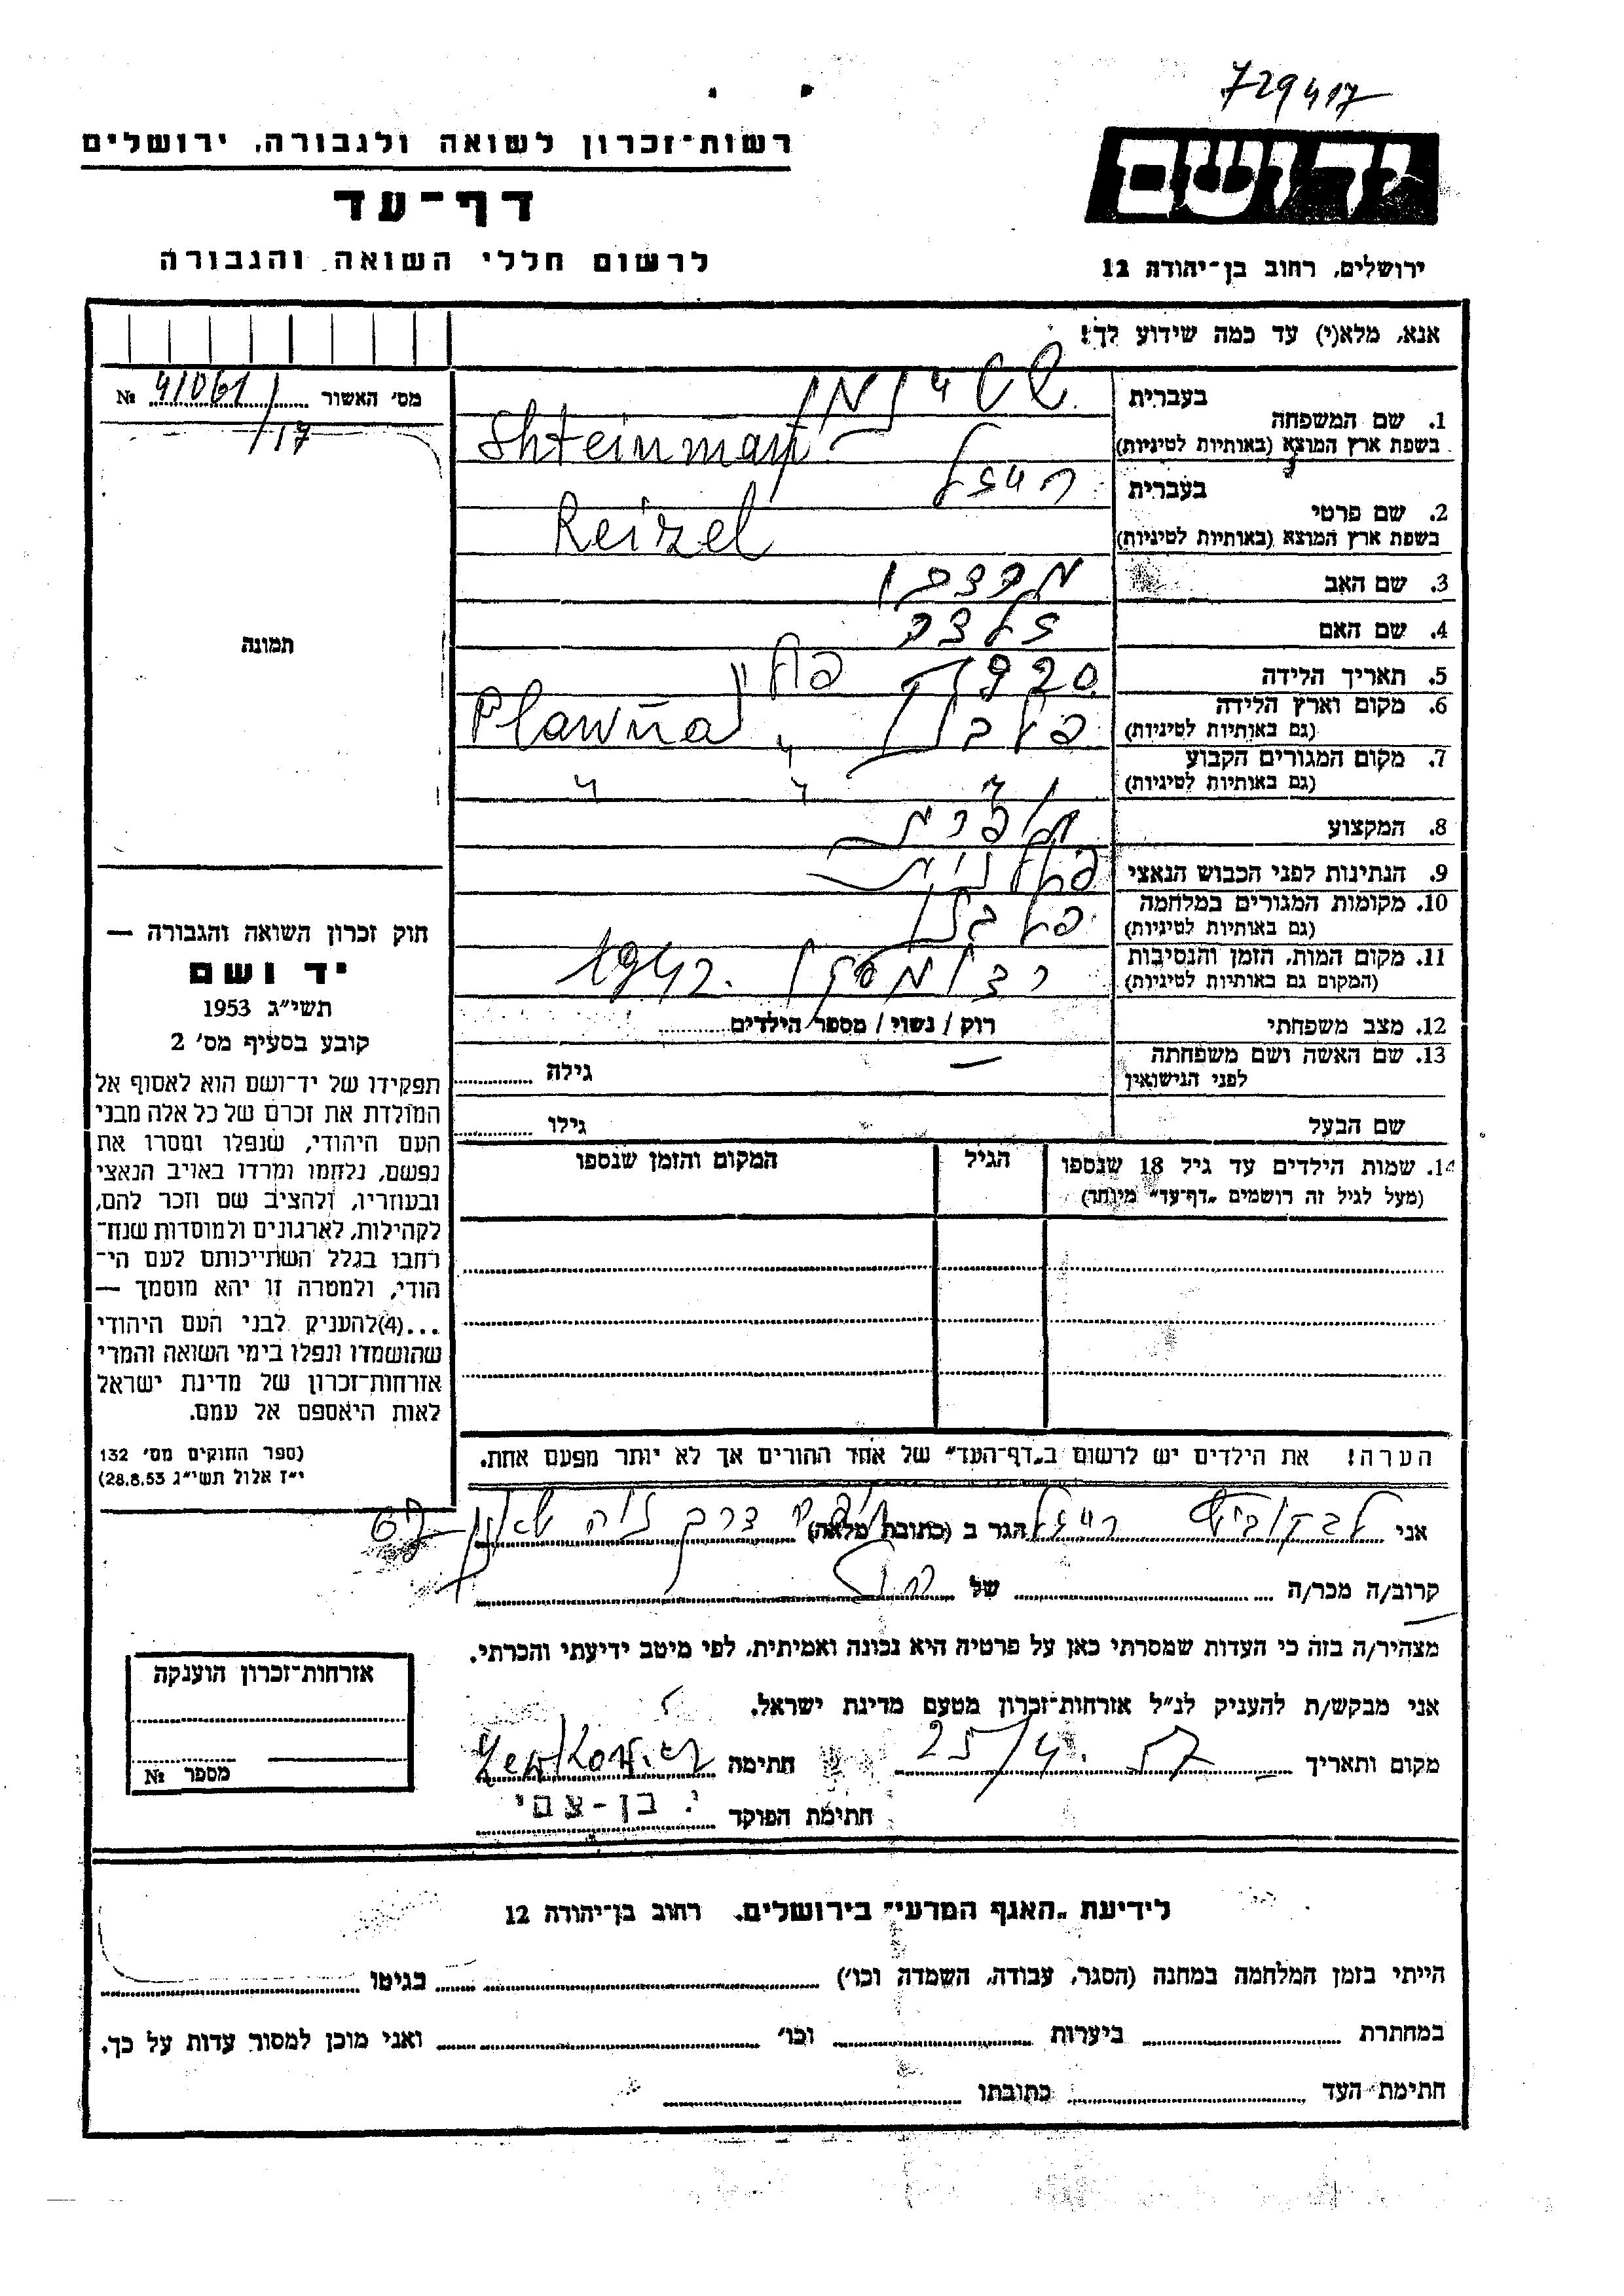 729417
רשות־זכרון לשואה ולגבורה, ירושלים
יד ושם
דף־עד
לרשום חללי השואה והגבורה
ירושלים, רחוב בן־יהודה 12
אנא, מלא(י) עד כמה שידוע לך!
מס' האשור 41061 №
/17
תמונה
1. שם המשפחה
בעברית שטיינמן
בשפת ארץ המוצא (באותיות לטיניות) Shteinman
2. שם פרטי
בעברית רייזל
בשפת ארץ המוצא (באותיות לטיניות) Reizel
3. שם האב מרדכי
4. שם האם
5. תאריך הלידה 1920
6. מקום וארץ הלידה
(גם באותיות לטיניות) Plawna
7. מקום המגורים הקבוע
(גם באותיות לטיניות) " " "
8. המקצוע תופרת
9. הנתינות לפני הכבוש הנאצי פולנית
10. מקומות המגורים במלחמה
(גם באותיות לטיניות)
11. מקום המות, הזמן והנסיבות
(המקום גם באותיות לטיניות) 1942
12. מצב משפחתי רוק / נשוי / מספר הילדים
13. שם האשה ושם משפחתה
לפני הנישואין גילה
שם הבעל גילו
14. שמות הילדים עד גיל 18 שנספו
(מעל לגיל זה רושמים „דף־עד" מיוחד)
הגיל
המקום והזמן שנספו
הערה! את הילדים יש לרשום ב„דף־העד" של אחד ההורים אך לא יותר מפעם אחת.
חוק זכרון השואה והגבורה —
יד ושם
תשי"ג 1953
קובע בסעיף מס' 2
תפקידו של יד־ושם הוא לאסוף אל
המולדת את זכרם של כל אלה מבני
העם היהודי, שנפלו ומסרו את
נפשם, נלחמו ומרדו באויב הנאצי
ובעוזריו, ולהציב שם וזכר להם,
לקהילות, לארגונים ולמוסדות שנח־
רחבו בגלל השתייכותם לעם הי־
הודי, ולמטרה זו יהא מוסמך —
...(4)להעניק לבני העם היהודי
שהושמדו ונפלו בימי השואה והמרי
אזרחות־זכרון של מדינת ישראל
לאות היאספם אל עמם.
(ספר החוקים מס' 132
י"ז אלול תשי"ג 28.8.53)
אני לבקוביץ רייזל הגר ב (כתובת מלאה)
קרוב/ה מכר/ה של
מצהיר/ה בזה כי העדות שמסרתי כאן על פרטיה היא נכונה ואמיתית, לפי מיטב ידיעתי והכרתי.
אני מבקש/ת להעניק לנ"ל אזרחות־זכרון מטעם מדינת ישראל.
מקום ותאריך 25/4.57 חתימה
חתימת הפוקד
אזרחות־זכרון הוענקה
מספר №
לידיעת „האגף המדעי" בירושלים, רחוב בן־יהודה 12
הייתי בזמן המלחמה במחנה (הסגר, עבודה, השמדה וכו') בגיטו
במחתרת ביערות וכו' ואני מוכן למסור עדות על כך.
חתימת העד כתובתו